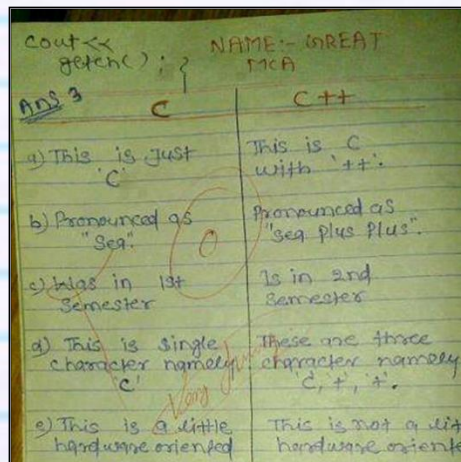 cout<<
getch(); }
NAME:- GREAT
MCA
Ans 3
C
C++
a) This is Just
'C'
This is C
with '++'.
b) Pronounced as
"Sea".
Pronounced as
"Sea Plus Plus".
0
c) Was in 1st
Semester
Is in 2nd
Semester
d) This is single
character namely
'C'
These are three
character namely
'C, +, +'.
Very
e) This is a little
hardware oriented
This is not a lit
hardware oriente